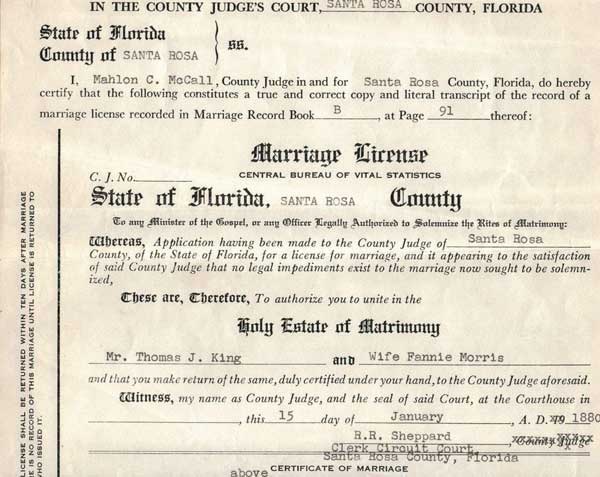 IN THE COUNTY JUDGE'S COURT, SANTA ROSA COUNTY, FLORIDA
State of Florida
County of SANTA ROSA
ss.
I, Mahlon C. McCall, County Judge in and for Santa Rosa County, Florida, do hereby
certify that the following constitutes a true and correct copy and literal transcript of the record of a
marriage license recorded in Marriage Record Book B, at Page 91 thereof:
Marriage License
C. J. No.
CENTRAL BUREAU OF VITAL STATISTICS
State of Florida, SANTA ROSA County
To any Minister of the Gospel, or any Officer Legally Authorized to Solemnize the Rites of Matrimony:
Whereas, Application having been made to the County Judge of Santa Rosa
County, of the State of Florida, for a license for marriage, and it appearing to the satisfaction
of said County Judge that no legal impediments exist to the marriage now sought to be solemn-
ized,
These are, Therefore, To authorize you to unite in the
Holy Estate of Matrimony
Mr. Thomas J. King and Wife Fannie Morris
and that you make return of the same, duly certified under your hand, to the County Judge aforesaid.
Witness, my name as County Judge, and the seal of said Court, at the Courthouse in
, this 15 day of January, A. D. 1880
R.R. Sheppard, County Judge
Clerk Circuit Court
Santa Rosa County, Florida
CERTIFICATE OF MARRIAGE
above
LICENSE SHALL BE RETURNED WITHIN TEN DAYS AFTER MARRIAGE
E IS NO RECORD OF THIS MARRIAGE UNTIL LICENSE IS RETURNED TO
WHO ISSUED IT.